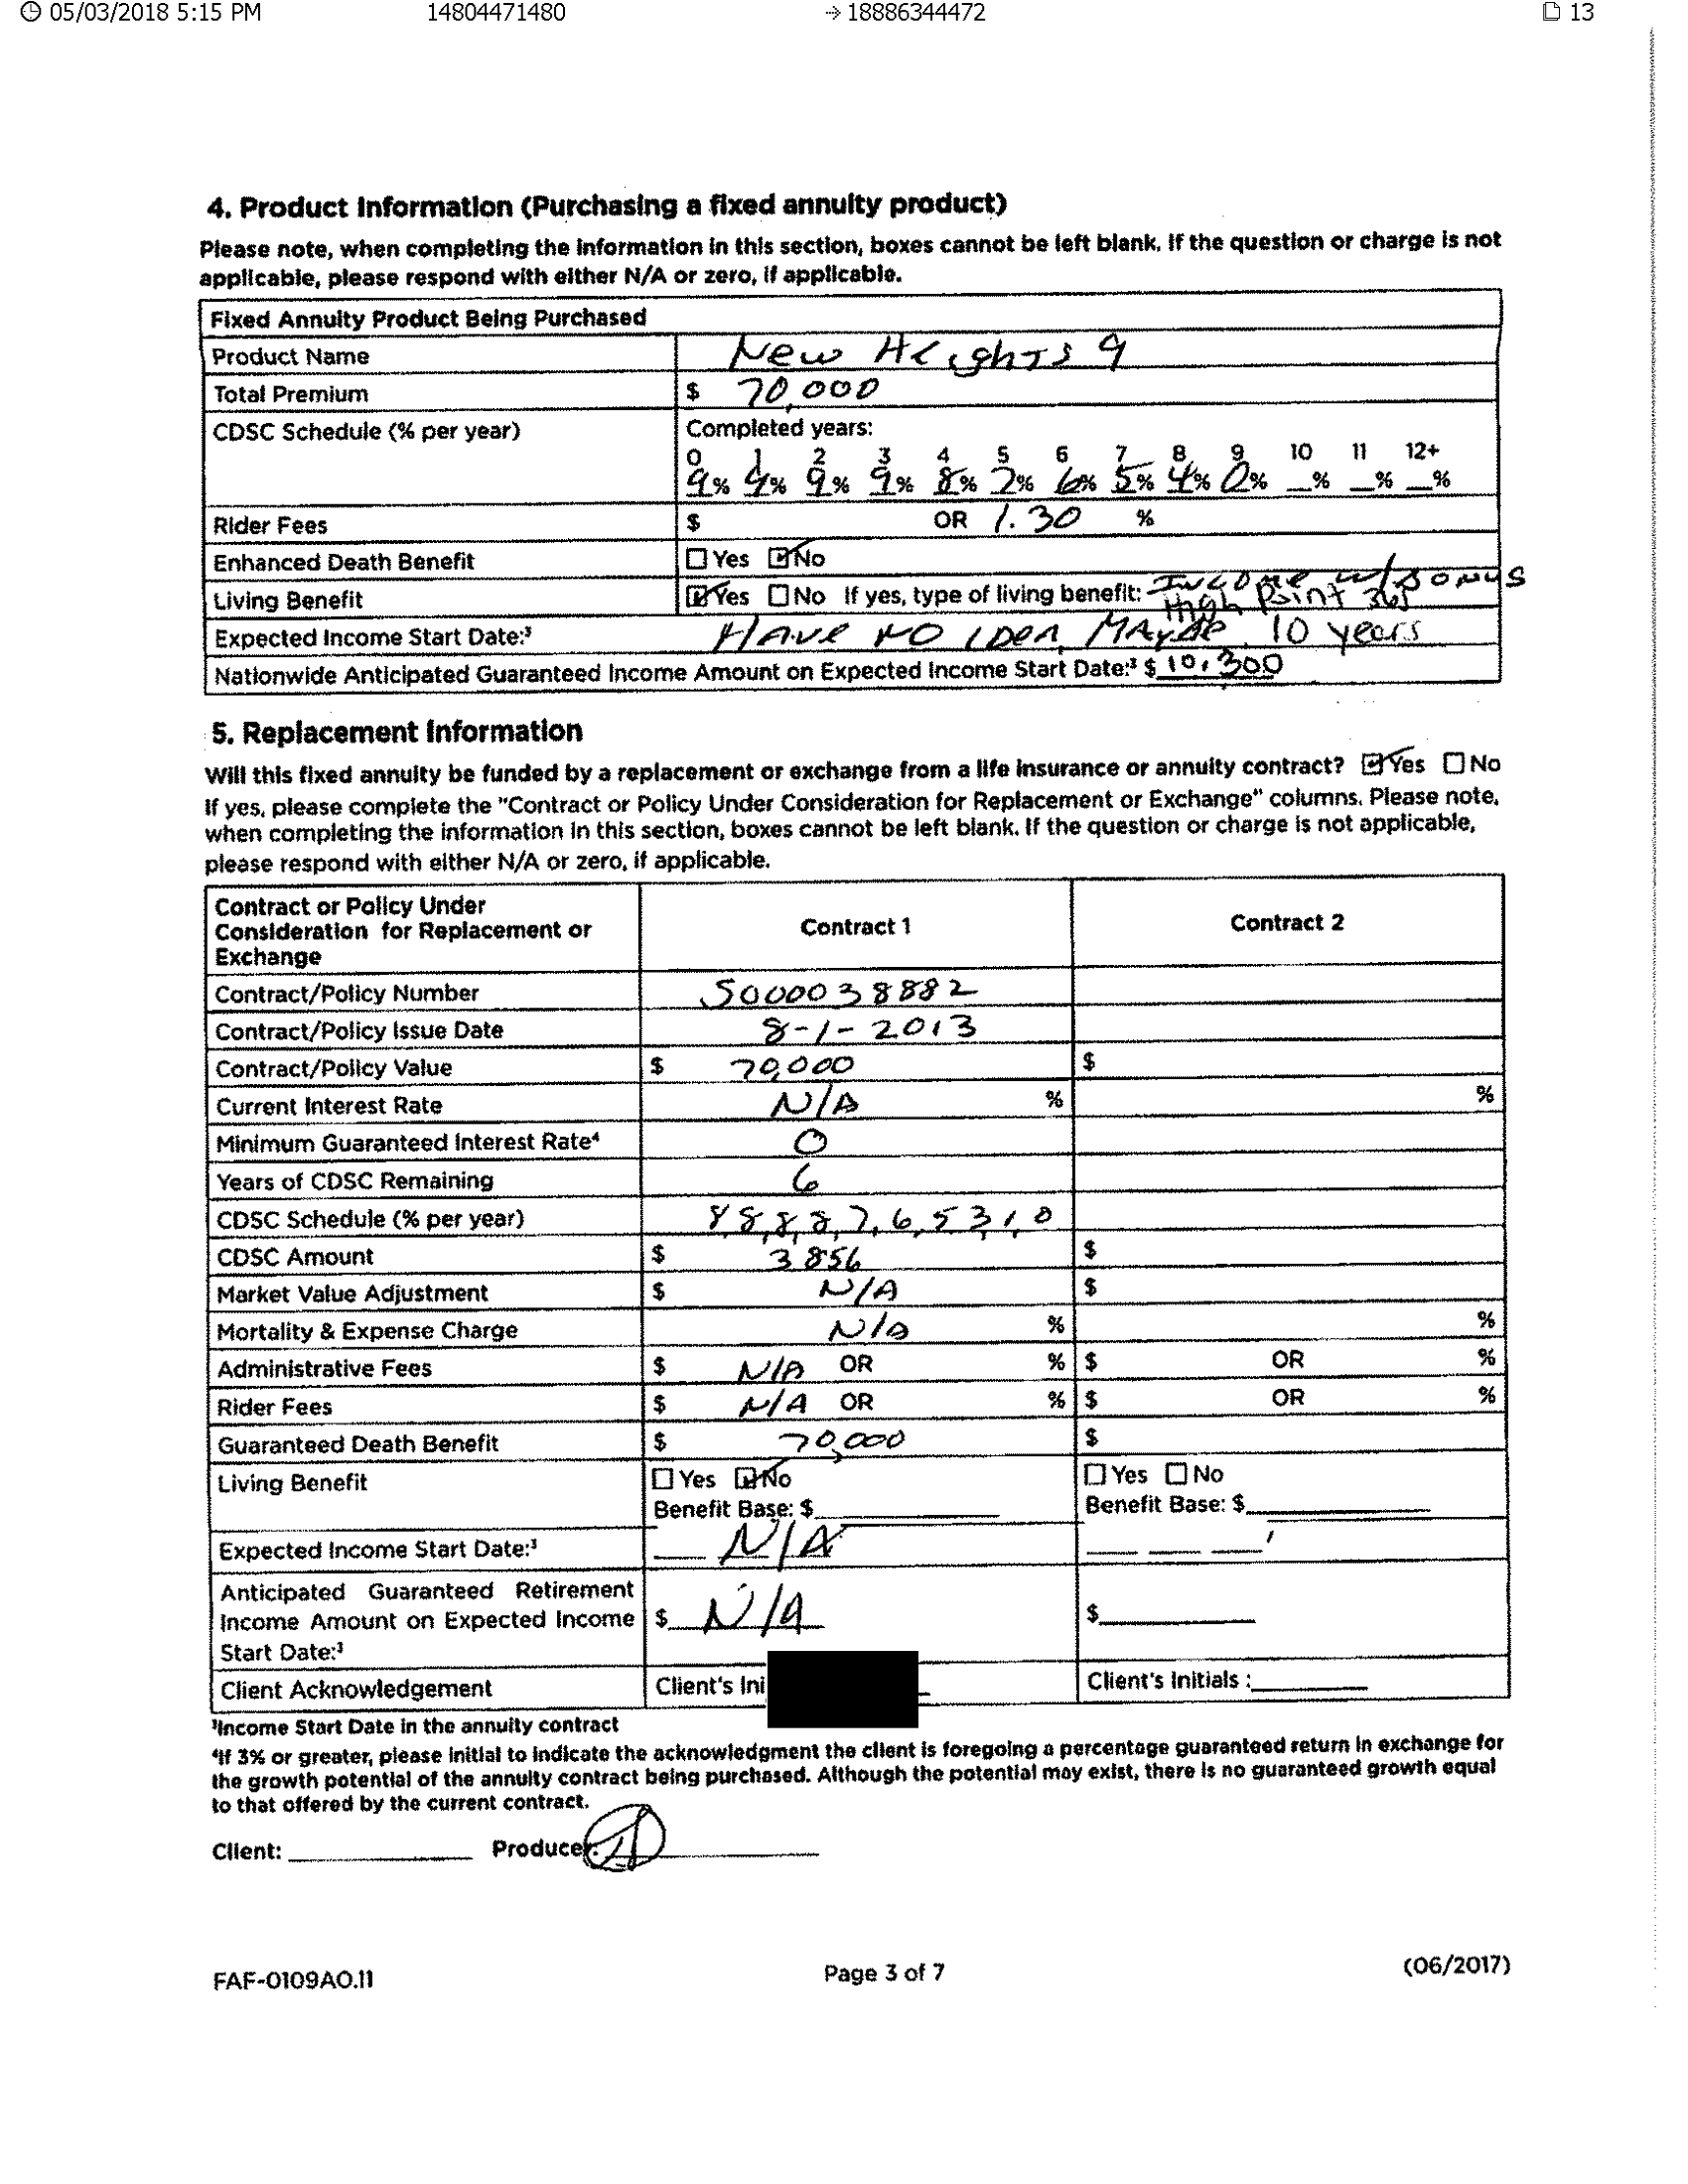 05/03/2018 5:15 PM 14804471480 → 18886344472 13
4. Product Information (Purchasing a fixed annuity product)
Please note, when completing the information in this section, boxes cannot be left blank. If the question or charge is not
applicable, please respond with either N/A or zero, if applicable.
Fixed Annuity Product Being Purchased
Product Name New Heights 9
Total Premium $ 70,000
CDSC Schedule (% per year) Completed years:
0 1 2 3 4 5 6 7 8 9 10 11 12+
9% 9% 9% 9% 8% 7% 6% 5% 4% 0% _% _% _%
Rider Fees $ OR 1.30 %
Enhanced Death Benefit Yes No
Living Benefit Yes No If yes, type of living benefit: Income w/Bonus
High Point 365
Expected Income Start Date:³ HAVE NO IDEA, MAYBE 10 years
Nationwide Anticipated Guaranteed Income Amount on Expected Income Start Date:³ $ 10,300
5. Replacement Information
Will this fixed annuity be funded by a replacement or exchange from a life insurance or annuity contract? Yes No
If yes, please complete the "Contract or Policy Under Consideration for Replacement or Exchange" columns. Please note,
when completing the information in this section, boxes cannot be left blank. If the question or charge is not applicable,
please respond with either N/A or zero, if applicable.
Contract or Policy Under
Consideration for Replacement or
Exchange
Contract 1 Contract 2
Contract/Policy Number 5000038882
Contract/Policy Issue Date 8-1-2013
Contract/Policy Value $ 70,000 $
Current Interest Rate N/A % %
Minimum Guaranteed Interest Rate⁴ 0
Years of CDSC Remaining 6
CDSC Schedule (% per year) 8,8,8,8,7,6,5,3,1,0
CDSC Amount $ 3856 $
Market Value Adjustment $ N/A $
Mortality & Expense Charge N/A % %
Administrative Fees $ N/A OR % $ OR %
Rider Fees $ N/A OR % $ OR %
Guaranteed Death Benefit $ 70,000 $
Living Benefit Yes No Yes No
Benefit Base: $ Benefit Base: $
Expected Income Start Date:³ N/A
Anticipated Guaranteed Retirement
Income Amount on Expected Income $ N/A $
Start Date:³
Client Acknowledgement Client's Ini Client's Initials :
³Income Start Date in the annuity contract
⁴If 3% or greater, please initial to indicate the acknowledgment the client is foregoing a percentage guaranteed return in exchange for
the growth potential of the annuity contract being purchased. Although the potential may exist, there is no guaranteed growth equal
to that offered by the current contract.
Client: Producer:
FAF-0109AO.11 Page 3 of 7 (06/2017)